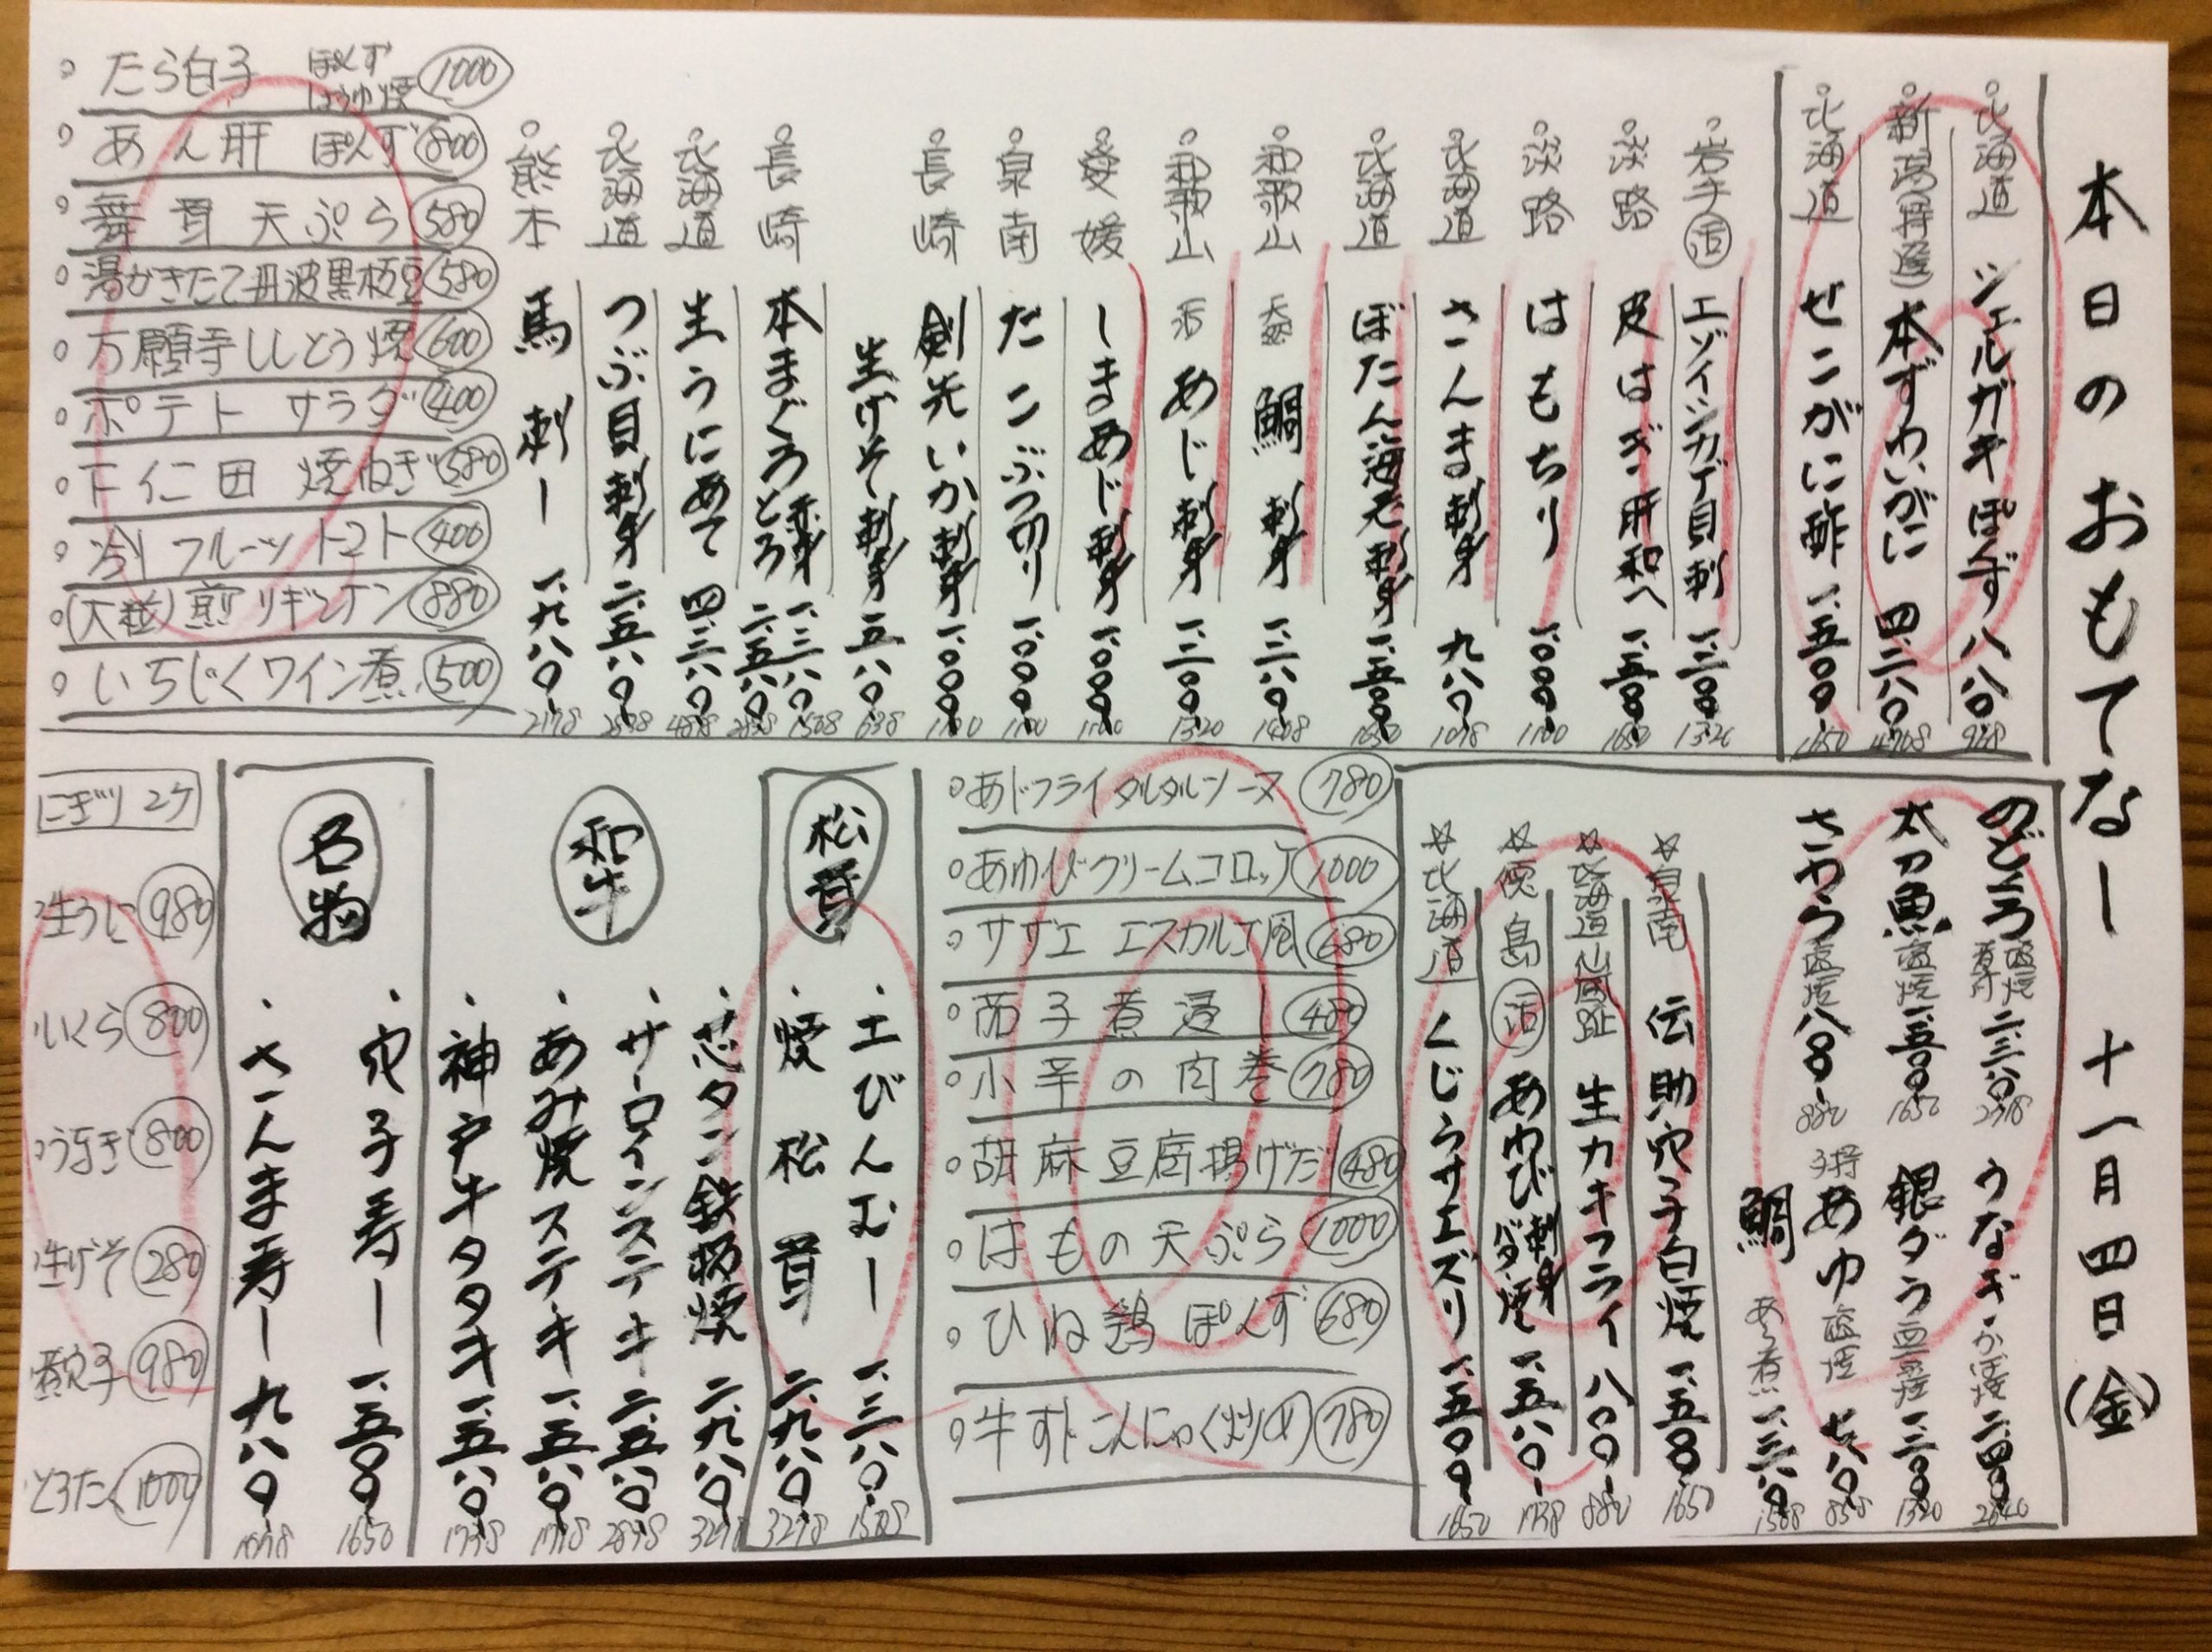 本日のおもてなしー 十一月四日(金)
北海道 シェルガキぽんず 八八〇 968
新潟(特選)本ずわいがに 四、二八〇 4708
北海道 せこがに酢 一、五〇〇 1650
岩手 活 エゾイシカゲ貝刺 一、二〇〇 1320
淡路 皮はぎ肝和へ 一、五〇〇 1650
淡路 はもちり 一、〇〇〇 1100
北海道 さんま刺身 九八〇 1078
北海道 ぼたん海老刺身 一、五〇〇 1650
和歌山 天然 鯛 刺身 一、二八〇 1408
和歌山 活 あじ刺身 一、二〇〇 1320
愛媛 しまあじ刺身 一、〇〇〇 1100
泉南 たこぶつ切り 一、〇〇〇 1100
長崎 剣先いか刺身 一、〇〇〇 1100
生げそ刺身 五八〇 638
長崎 本まぐろ 赤身 一、三八〇 1508
とろ 二、五八〇 2838
北海道 生うにあて 四、三八〇 4818
北海道 つぶ貝刺身 二、五八〇 2838
熊本 馬刺し 一、九八〇 2178
たら白子 ぽんず しょうゆ焼 1000
あん肝 ぽんず 800
舞茸天ぷら 580
湯がきたて丹波黒枝豆 580
万願寺ししとう焼 600
ポテトサラダ 400
下仁田 焼ねぎ 580
冷しフルーツトマト 400
(大粒)煎りギンナン 880
いちじくワイン煮 500
のどぐろ 塩焼 煮付 二、三八〇 2618
うなぎ かば焼 二、四〇〇 2640
太刀魚 塩焼 一、五〇〇 1650
銀ダラ 西京焼 一、二〇〇 1320
さわら 塩焼 八〇〇 880
子持 あゆ 塩焼 七八〇 858
鯛 あら煮 一、三八〇 1508
泉南 伝助穴子白焼 一、五〇〇 1650
北海道仙鳳趾 生カキフライ 八〇〇 880
徳島 活 あわび 刺身 バター焼 一、五八〇 1738
北海道 くじらサエズリ 一、五〇〇 1650
あじフライタルタルソース 780
あわびクリームコロッケ 1000
サザエ エスカルゴ風 680
茄子煮浸し 480
小芋の肉巻 780
胡麻豆腐揚げだし 480
はもの天ぷら 1000
ひね鶏ぽんず 680
牛すじこんにゃく炒め 780
松茸
土びんむし 一、三八〇 1508
焼松茸 二、九八〇 3278
和牛
芯タン鉄板焼 二、九八〇 3278
サーロインステーキ 二、五八〇 2838
あみ焼ステーキ 一、五八〇 1738
神戸牛タタキ 一、五八〇 1738
名物
穴子寿し 一、五〇〇 1650
さんま寿し 九八〇 1078
にぎり 2ケ
生うに 980
いくら 800
うなぎ 800
生げそ 280
煮穴子 980
とろたく 1000